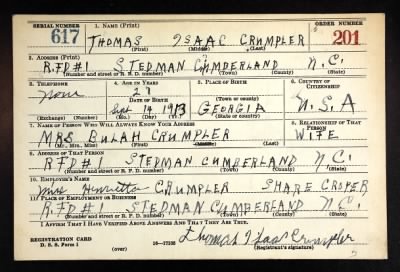 SERIAL NUMBER 1. NAME (Print) ORDER NUMBER
617 THOMAS ISAAC CRUMPLER 201
(First) (Middle) (Last)
2. ADDRESS (Print)
R.F.D #1 STEDMAN CUMBERLAND N.C.
(Number and street or R. F. D. number) (Town) (County) (State)
3. TELEPHONE 4. AGE IN YEARS 5. PLACE OF BIRTH 6. COUNTRY OF CITIZENSHIP
None 27 GEORGIA U.S.A
DATE OF BIRTH (Town or county)
Sept 14 1913
(Exchange) (Number) (Mo.) (Day) (Yr.) (State or country)
7. NAME OF PERSON WHO WILL ALWAYS KNOW YOUR ADDRESS 8. RELATIONSHIP OF THAT PERSON
MRS BULAH CRUMPLER WIFE
(Mr., Mrs., Miss) (First) (Middle) (Last)
9. ADDRESS OF THAT PERSON
RFD #1 STEDMAN CUMBERLAND N.C.
(Number and street or R. F. D. number) (Town) (County) (State)
10. EMPLOYER'S NAME
Henrietta CRUMPLER SHARE CROPER
11. PLACE OF EMPLOYMENT OR BUSINESS
R.F.D #1 STEDMAN CUMBERLAND N.C.
(Number and street or R. F. D. number) (Town) (County) (State)
I AFFIRM THAT I HAVE VERIFIED ABOVE ANSWERS AND THAT THEY ARE TRUE.
REGISTRATION CARD
D. S. S. Form 1 (over) 16—17105 Thomas Isaac Crumpler
(Registrant's signature)